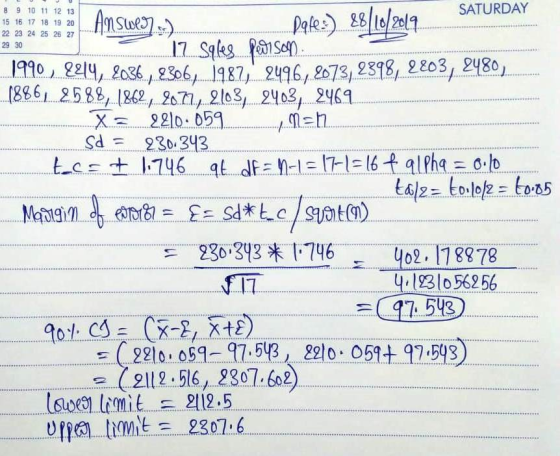 SATURDAY
8 9 10 11 12 13
15 16 17 18 19 20
22 23 24 25 26 27
29 30
Answer:-) Date:-) 28/10/2019
17 Sales Person.
1990, 2214, 2036, 2306, 1987, 2496, 2073, 2398, 2203, 2480,
1886, 2588, 1862, 2077, 2103, 2403, 2469
x̄ = 2210.059 , n=17
Sd = 230.343
t_c = ± 1.746 at df = n-1 = 17-1 = 16 & alpha = 0.10
tα/2 = t0.10/2 = t0.05
Margin of error = ε = Sd*t_c/sqrt(n)
= 230.343 * 1.746 / √17 = 402.178878 / 4.1231056256
= 97.543
90% CI = (x̄-ε, x̄+ε)
= (2210.059 - 97.543, 2210.059 + 97.543)
= (2112.516, 2307.602)
lower limit = 2112.5
upper limit = 2307.6